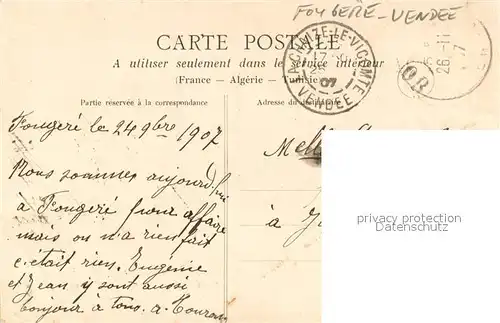 FOUGERE-VENDEE
CARTE POSTALE
A utiliser seulement dans le service intérieur
(France - Algérie - Tunisie)
LA CHAIZE-LE-VICOMTE
07
VENDÉE
26-11
07
OR
Partie réservée à la correspondance
Adresse du
Fougeré le 24 9bre 1907
Nous sommes aujourd'hui
à Fougeré pour affaire
mais on n'a rien fait
c'était rien. Eugénie
et Jean y sont aussi
bonjour à tous. a
Melle
à
privacy protection
Datenschutz